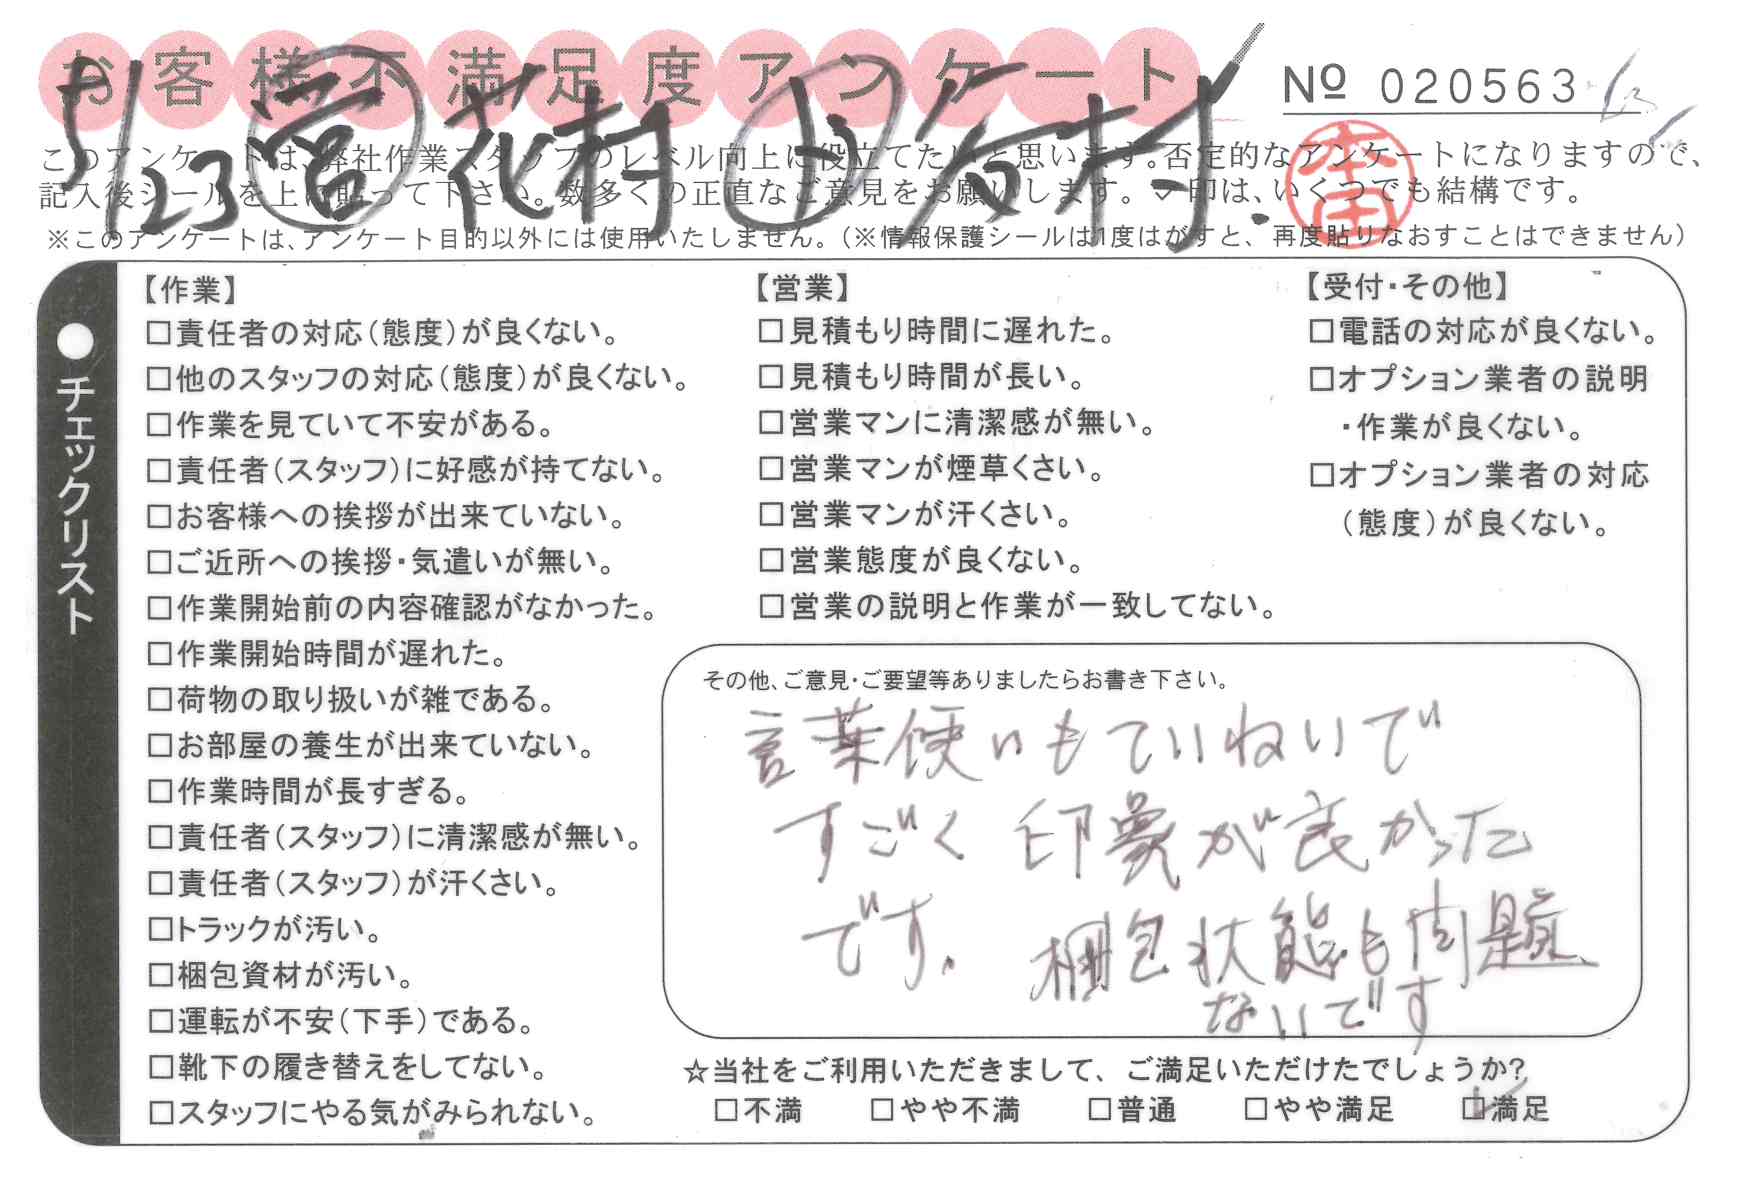 お客様不満足度アンケート
№ 020563
5/23 営 花村 上 谷村.
このアンケートは、弊社作業スタッフのレベル向上に役立てたいと思います。否定的なアンケートになりますので、
記入後シールを上に貼って下さい。数多くの正直なご意見をお願いします。✓印は、いくつでも結構です。
※このアンケートは、アンケート目的以外には使用いたしません。（※情報保護シールは1度はがすと、再度貼りなおすことはできません）
●チェックリスト
【作業】
□責任者の対応（態度）が良くない。
□他のスタッフの対応（態度）が良くない。
□作業を見ていて不安がある。
□責任者（スタッフ）に好感が持てない。
□お客様への挨拶が出来ていない。
□ご近所への挨拶・気遣いが無い。
□作業開始前の内容確認がなかった。
□作業開始時間が遅れた。
□荷物の取り扱いが雑である。
□お部屋の養生が出来ていない。
□作業時間が長すぎる。
□責任者（スタッフ）に清潔感が無い。
□責任者（スタッフ）が汗くさい。
□トラックが汚い。
□梱包資材が汚い。
□運転が不安（下手）である。
□靴下の履き替えをしてない。
□スタッフにやる気がみられない。
【営業】
□見積もり時間に遅れた。
□見積もり時間が長い。
□営業マンに清潔感が無い。
□営業マンが煙草くさい。
□営業マンが汗くさい。
□営業態度が良くない。
□営業の説明と作業が一致してない。
【受付・その他】
□電話の対応が良くない。
□オプション業者の説明
・作業が良くない。
□オプション業者の対応
（態度）が良くない。
その他、ご意見・ご要望等ありましたらお書き下さい。
言葉使いもていねいで
すごく印象が良かった
です。梱包状態も問題
ないです
☆当社をご利用いただきまして、ご満足いただけたでしょうか?
□不満 □やや不満 □普通 □やや満足 ☑満足